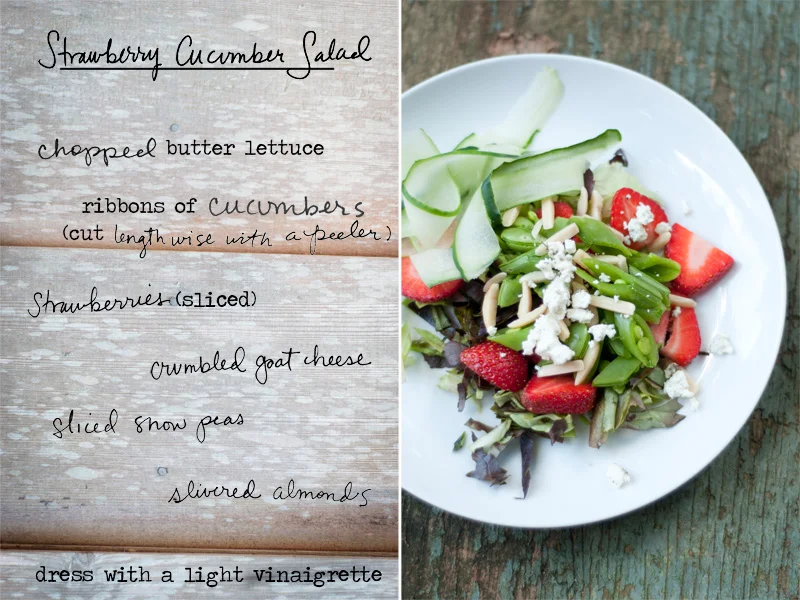 Strawberry Cucumber Salad
chopped butter lettuce
ribbons of cucumbers
(cut lengthwise with a peeler)
Strawberries (sliced)
crumbled goat cheese
sliced snow peas
slivered almonds
dress with a light vinaigrette